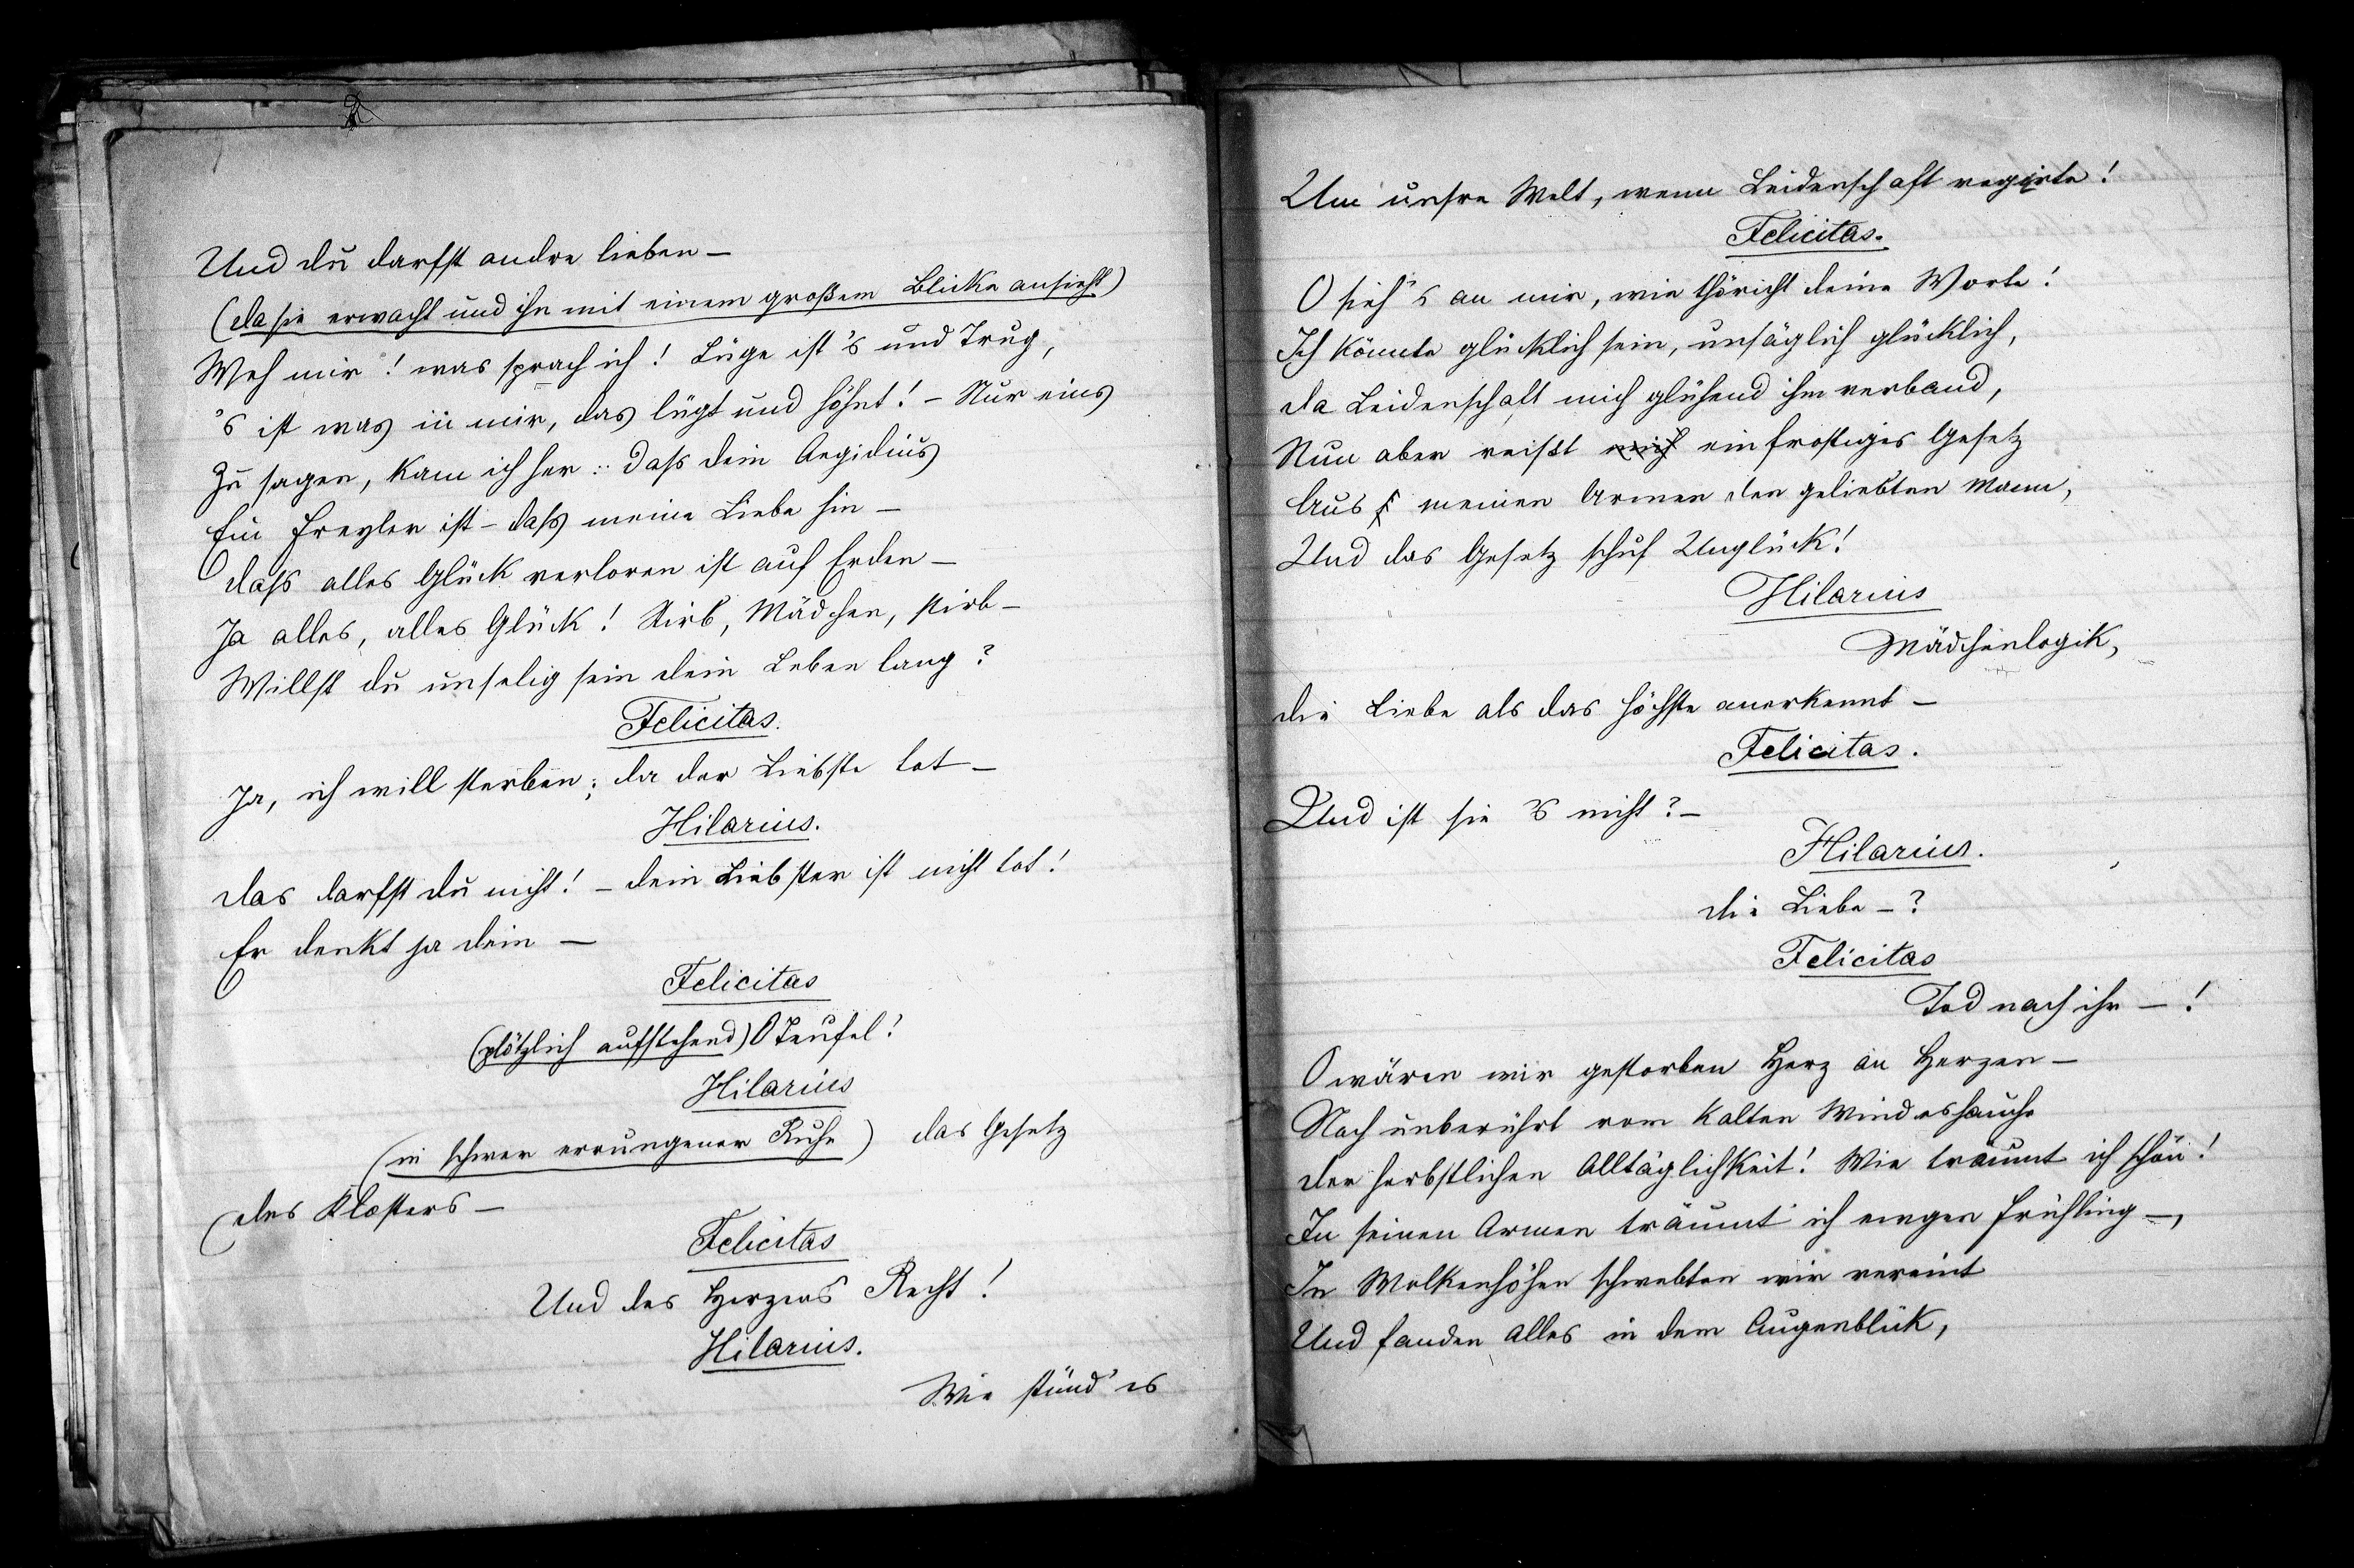 Und du darfst andre lieben –
(da sie erwacht und ihn mit einem großem Blicke ansieht)
Weh mir! was sprach ich! Lüge ist 's und Trug,
's ist was in mir, das lügt und höhnt! – Nur eins
Zu sagen, kam ich her: daß dein Aegidius
Ein Frevler ist – daß meine Liebe hin –
daß alles Glück verloren ist auf Erden –
Ja alles, alles Glück! Stirb, Mädchen, stirb –
Willst du unselig sein dein Leben lang?
Felicitas.
Ja, ich will sterben; da der Liebste tot –
Hilarius.
das darfst du nicht! – dein Liebster ist nicht tot!
Er denkt ja dein –
Felicitas
(plötzlich aufstehend) O Teufel!
Hilarius
(in schwer errungener Ruhe) das Gesetz
des Klosters –
Felicitas
Und des Herzens Recht!
Hilarius.
Wie stünd' es
Um unsre Welt, wenn Leidenschaft regirte!
Felicitas.
O sieh 's an mir, wie thöricht deine Worte!
Ich könnte glücklich sein, unsäglich glücklich,
da Leidenschaft mich glühend ihm verband,
Nun aber reißt mich ein frostiges Gesetz
Aus meinen Armen den geliebten Mann,
Und das Gesetz schuf Unglück!
Hilarius
Mädchenlogik,
die Liebe als das höchste anerkennt –
Felicitas.
Und ist sie 's nicht? –
Hilarius.
die Liebe – ?
Felicitas
Tod nach ihr – !
O wären wir gestorben Herz an Herzen –
Noch unberührt vom kalten Windeshauche
der herbstlichen Alltäglichkeit! Wie träumt ich schön!
In seinen Armen träumt' ich ewgen Frühling –,
In Wolkenhöhen schwebten wir vereint
Und fanden alles in dem Augenblick,